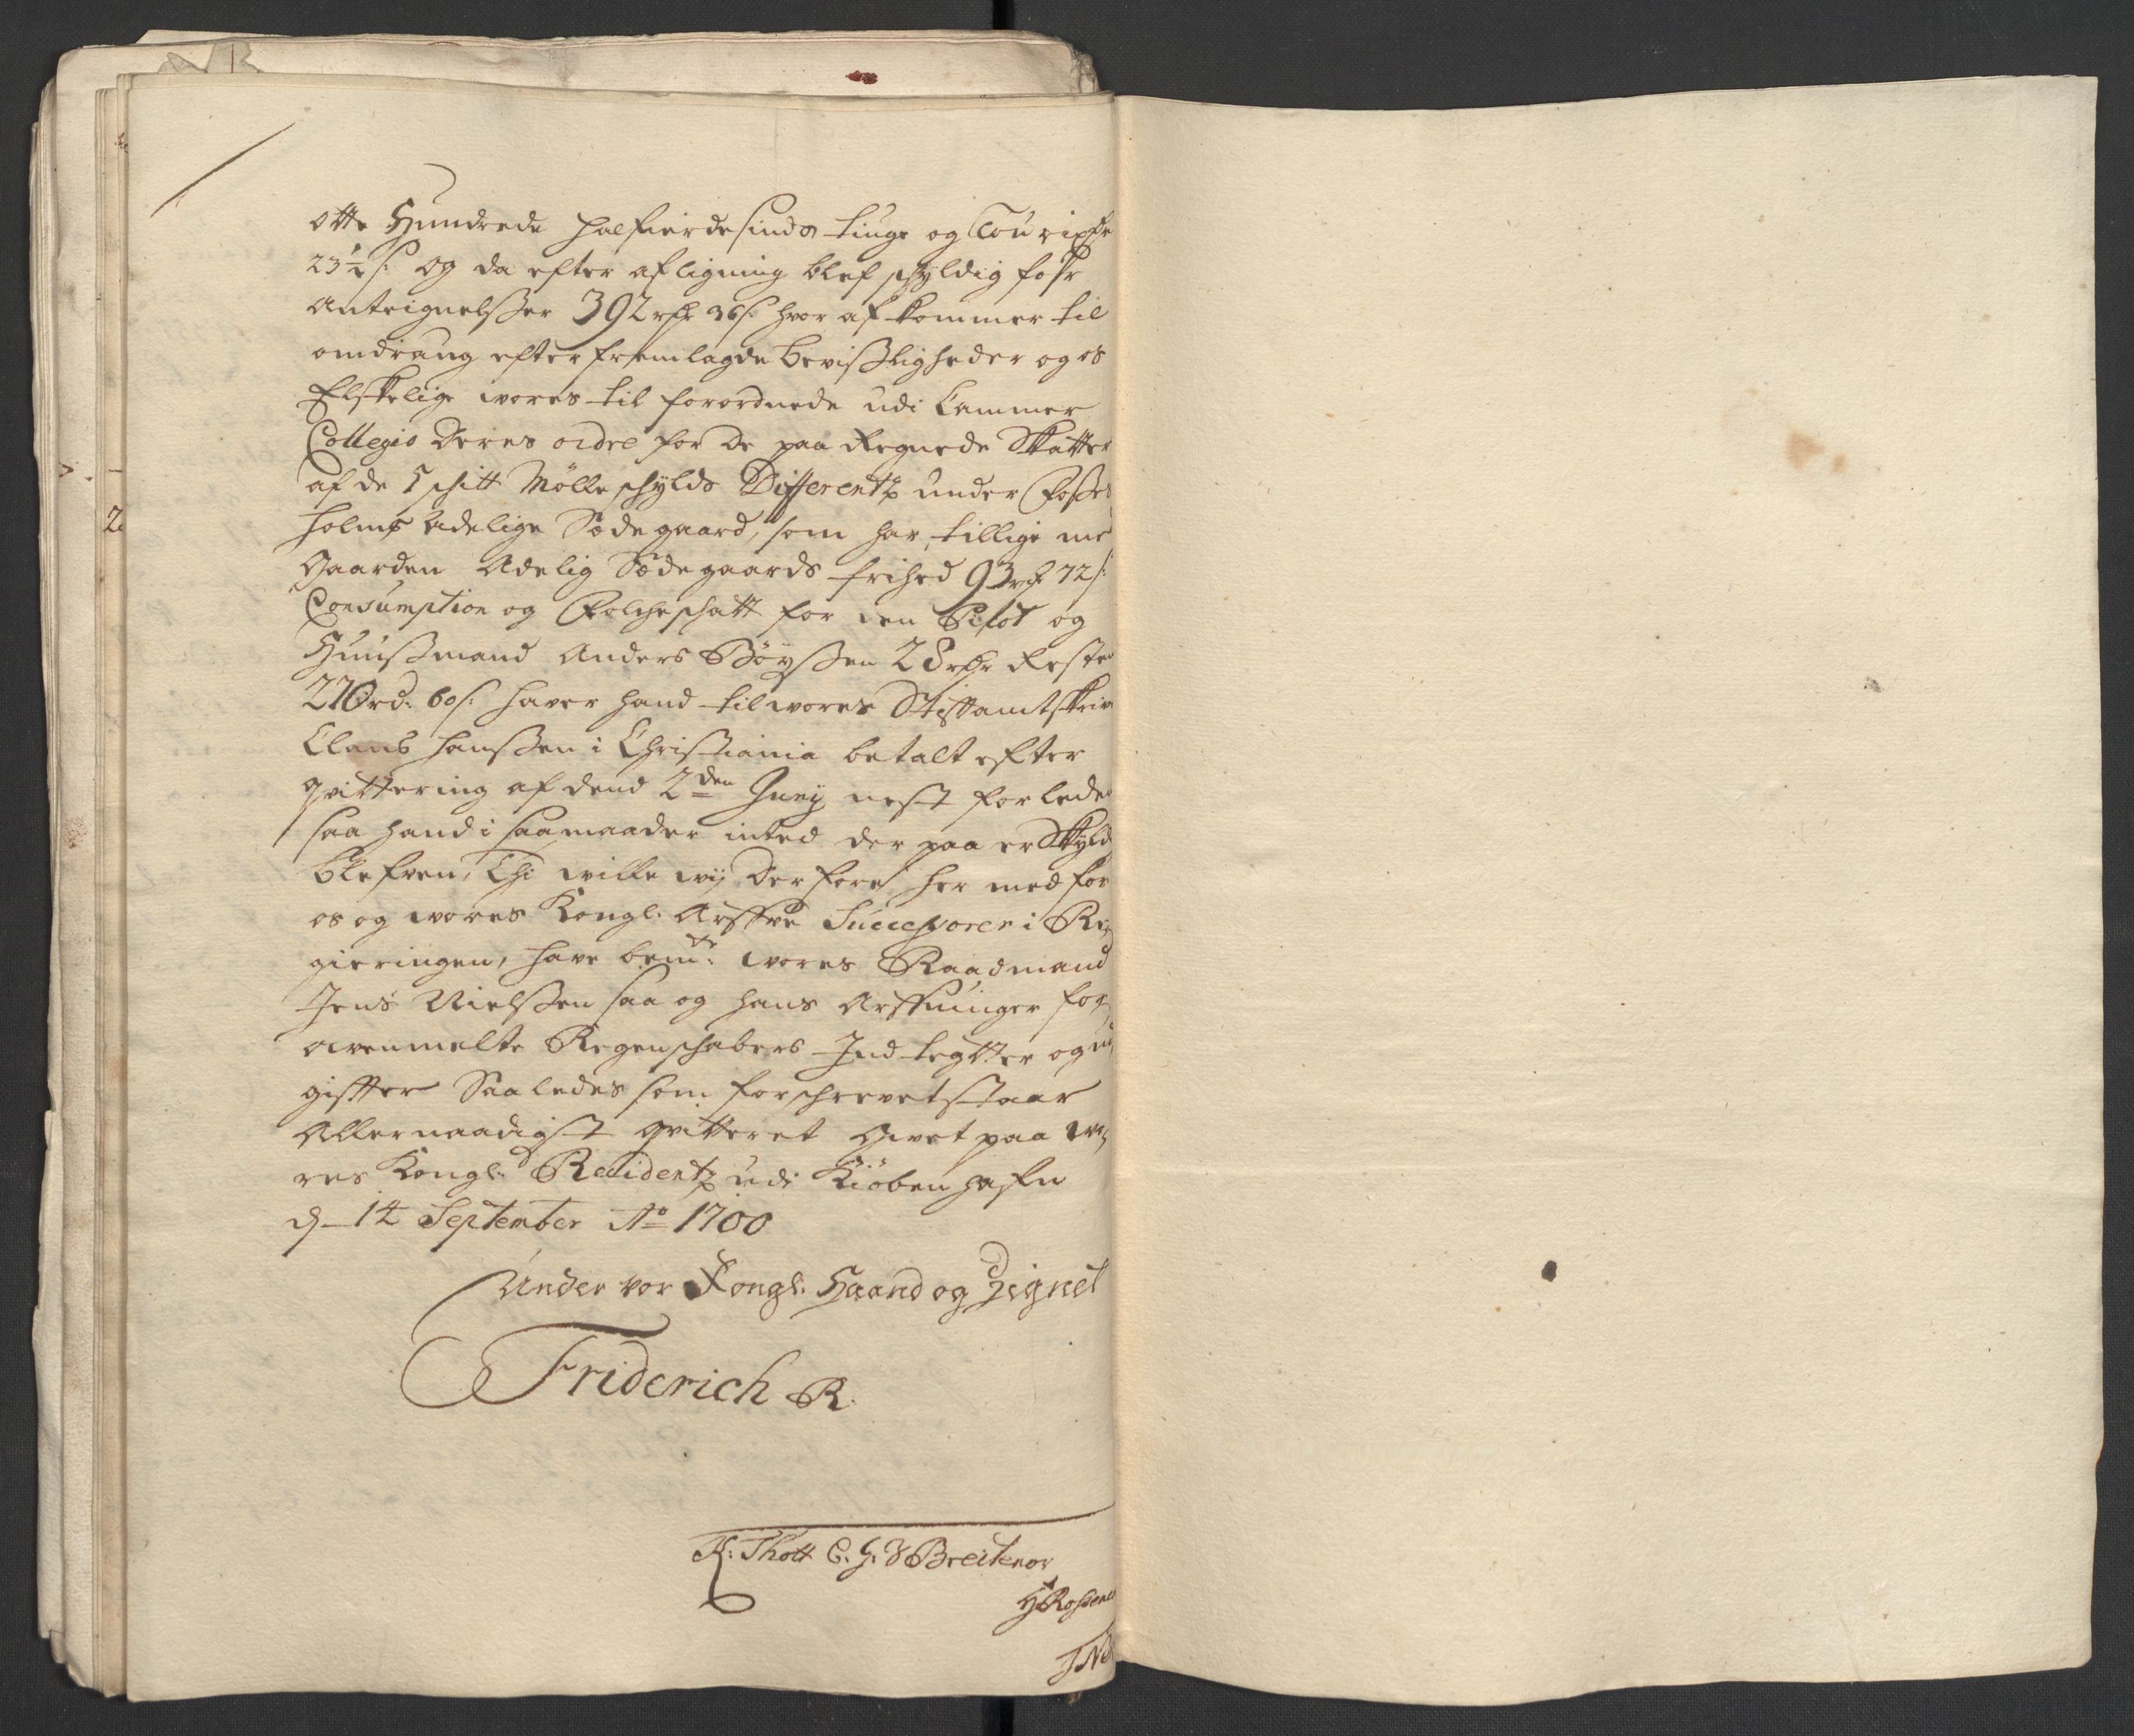 otte Hundrede halfierdesinds tiuge og Tou rixdr
23½ s: og da efter afligning blef schyldig for
Anteignelsser 392 rdr 36 s: hvor af kommer til
omdrang efter fremlagde bevissligheder og os
Elskelige wores til forordnede udi Cammer
Collegio deres ordre for de paa Regnede Skatter
af de 5 schitt Mølle schylds Differentz under Fosses
holms Adelige Sædegaard, som har tillige med
Gaarden Adelig Sædegaards frihed 93 rdr 72 s:
Consumption og Folcheschatt for den Pilot og
Huussmand Anders Bøyssen 28 rdr Resten
270 rd: 60 s: haver hand til wores Stifftamtskriv
Claus Hanssen i Christiania betalt efter
qvittering af dend 2den Junij nest forleden
saa hand i saa maader inted der paa er Skyldig
blefven, Thi wille wij derfore her med for
os og wores Kongl: Arffve Successorer i Re,
gieringen, have bemte: wores Raadmand
Jens Nielssen saa og hans Arffvinger for
ovenmelte Regenschabers Indtegter og ud,
giffter Saaledes som forschrevet staar
Allernaadigst qvitteret Givet paa wo,
res Kongl: Residentz udi Kiøbenhafn
d. 14 September Ao 1700
Under vor Kongl: Haand og Zignet
Friderich R.
K: Thott C. H. V Breitenov
H Rossen
JN